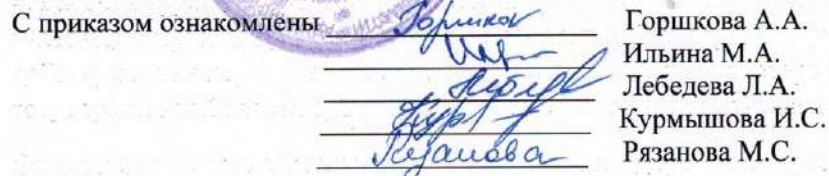 С приказом ознакомлены Горшков Горшкова А.А.
Ильина М.А.
Лебедева Л.А.
Курмышова И.С.
Рязанова Рязанова М.С.